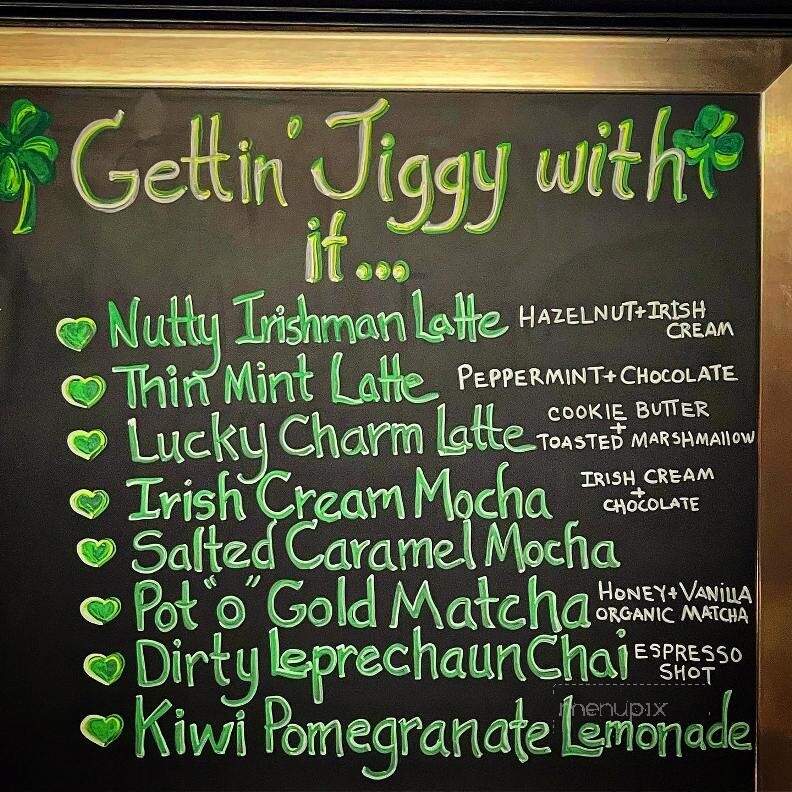 Gettin' Jiggy with
it...
Nutty Irishman Latte HAZELNUT+IRISH
CREAM
Thin Mint Latte PEPPERMINT+CHOCOLATE
Lucky Charm Latte COOKIE BUTTER
+
TOASTED MARSHMALLOW
Irish Cream Mocha IRISH CREAM
+
CHOCOLATE
Salted Caramel Mocha
Pot "o" Gold Matcha HONEY+VANILLA
ORGANIC MATCHA
Dirty Leprechaun Chai ESPRESSO
SHOT
menupix
Kiwi Pomegranate Lemonade